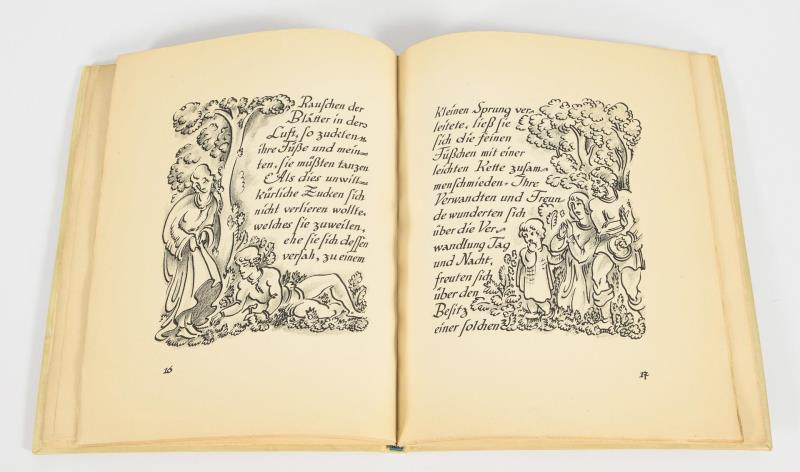 Rauſchen der
Blätter in der
Luft, ſo zuckten
ihre Füße und mein-
ten, ſie müßten tanzen
Als dies unwill-
kürliche Zucken ſich
nicht verlieren wollte,
welches ſie zuweilen,
ehe ſie ſich deſſen
verſah, zu einem
16
kleinen Sprung ver-
leitete, ließ ſie
ſich die feinen
Füßchen mit einer
leichten Kette zuſam-
menſchmieden. Ihre
Verwandten und Freun
de wunderten ſich
über die Ver-
wandlung Tag
und Nacht,
freuten ſich
über den
Beſitz
einer ſolchen
17